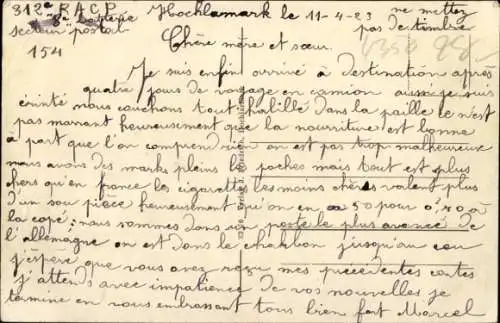 312e R.A.C.P. Hochlamark le 11-4-23 ne mettez
8e batterie pas de timbre
secteur postal
154 Chère mère et sœur.
Je suis enfin arrivé à destination après
quatre jours de voyage en camion aussi je suis
éreinté nous couchons tout habillé dans la paille ce n'est
pas marrant heureusement que la nourriture est bonne
à part que l'on comprend rien on est pas trop malheureux
nous avons des marks pleins les poches mais tout est plus
chers qu'en france les cigarettes les moins chères valent plus
d'un sou pièce heureusement qu'on en a 50 pour 0f40 à
la copé; nous sommes dans un poste le plus avancé de
l'allemagne on est dans le charbon jusqu'au cou
j'espère que vous avez reçu mes précédentes cartes
j'attends avec impatience de vos nouvelles je
termine en vous embrassant tous bien fort Marcel